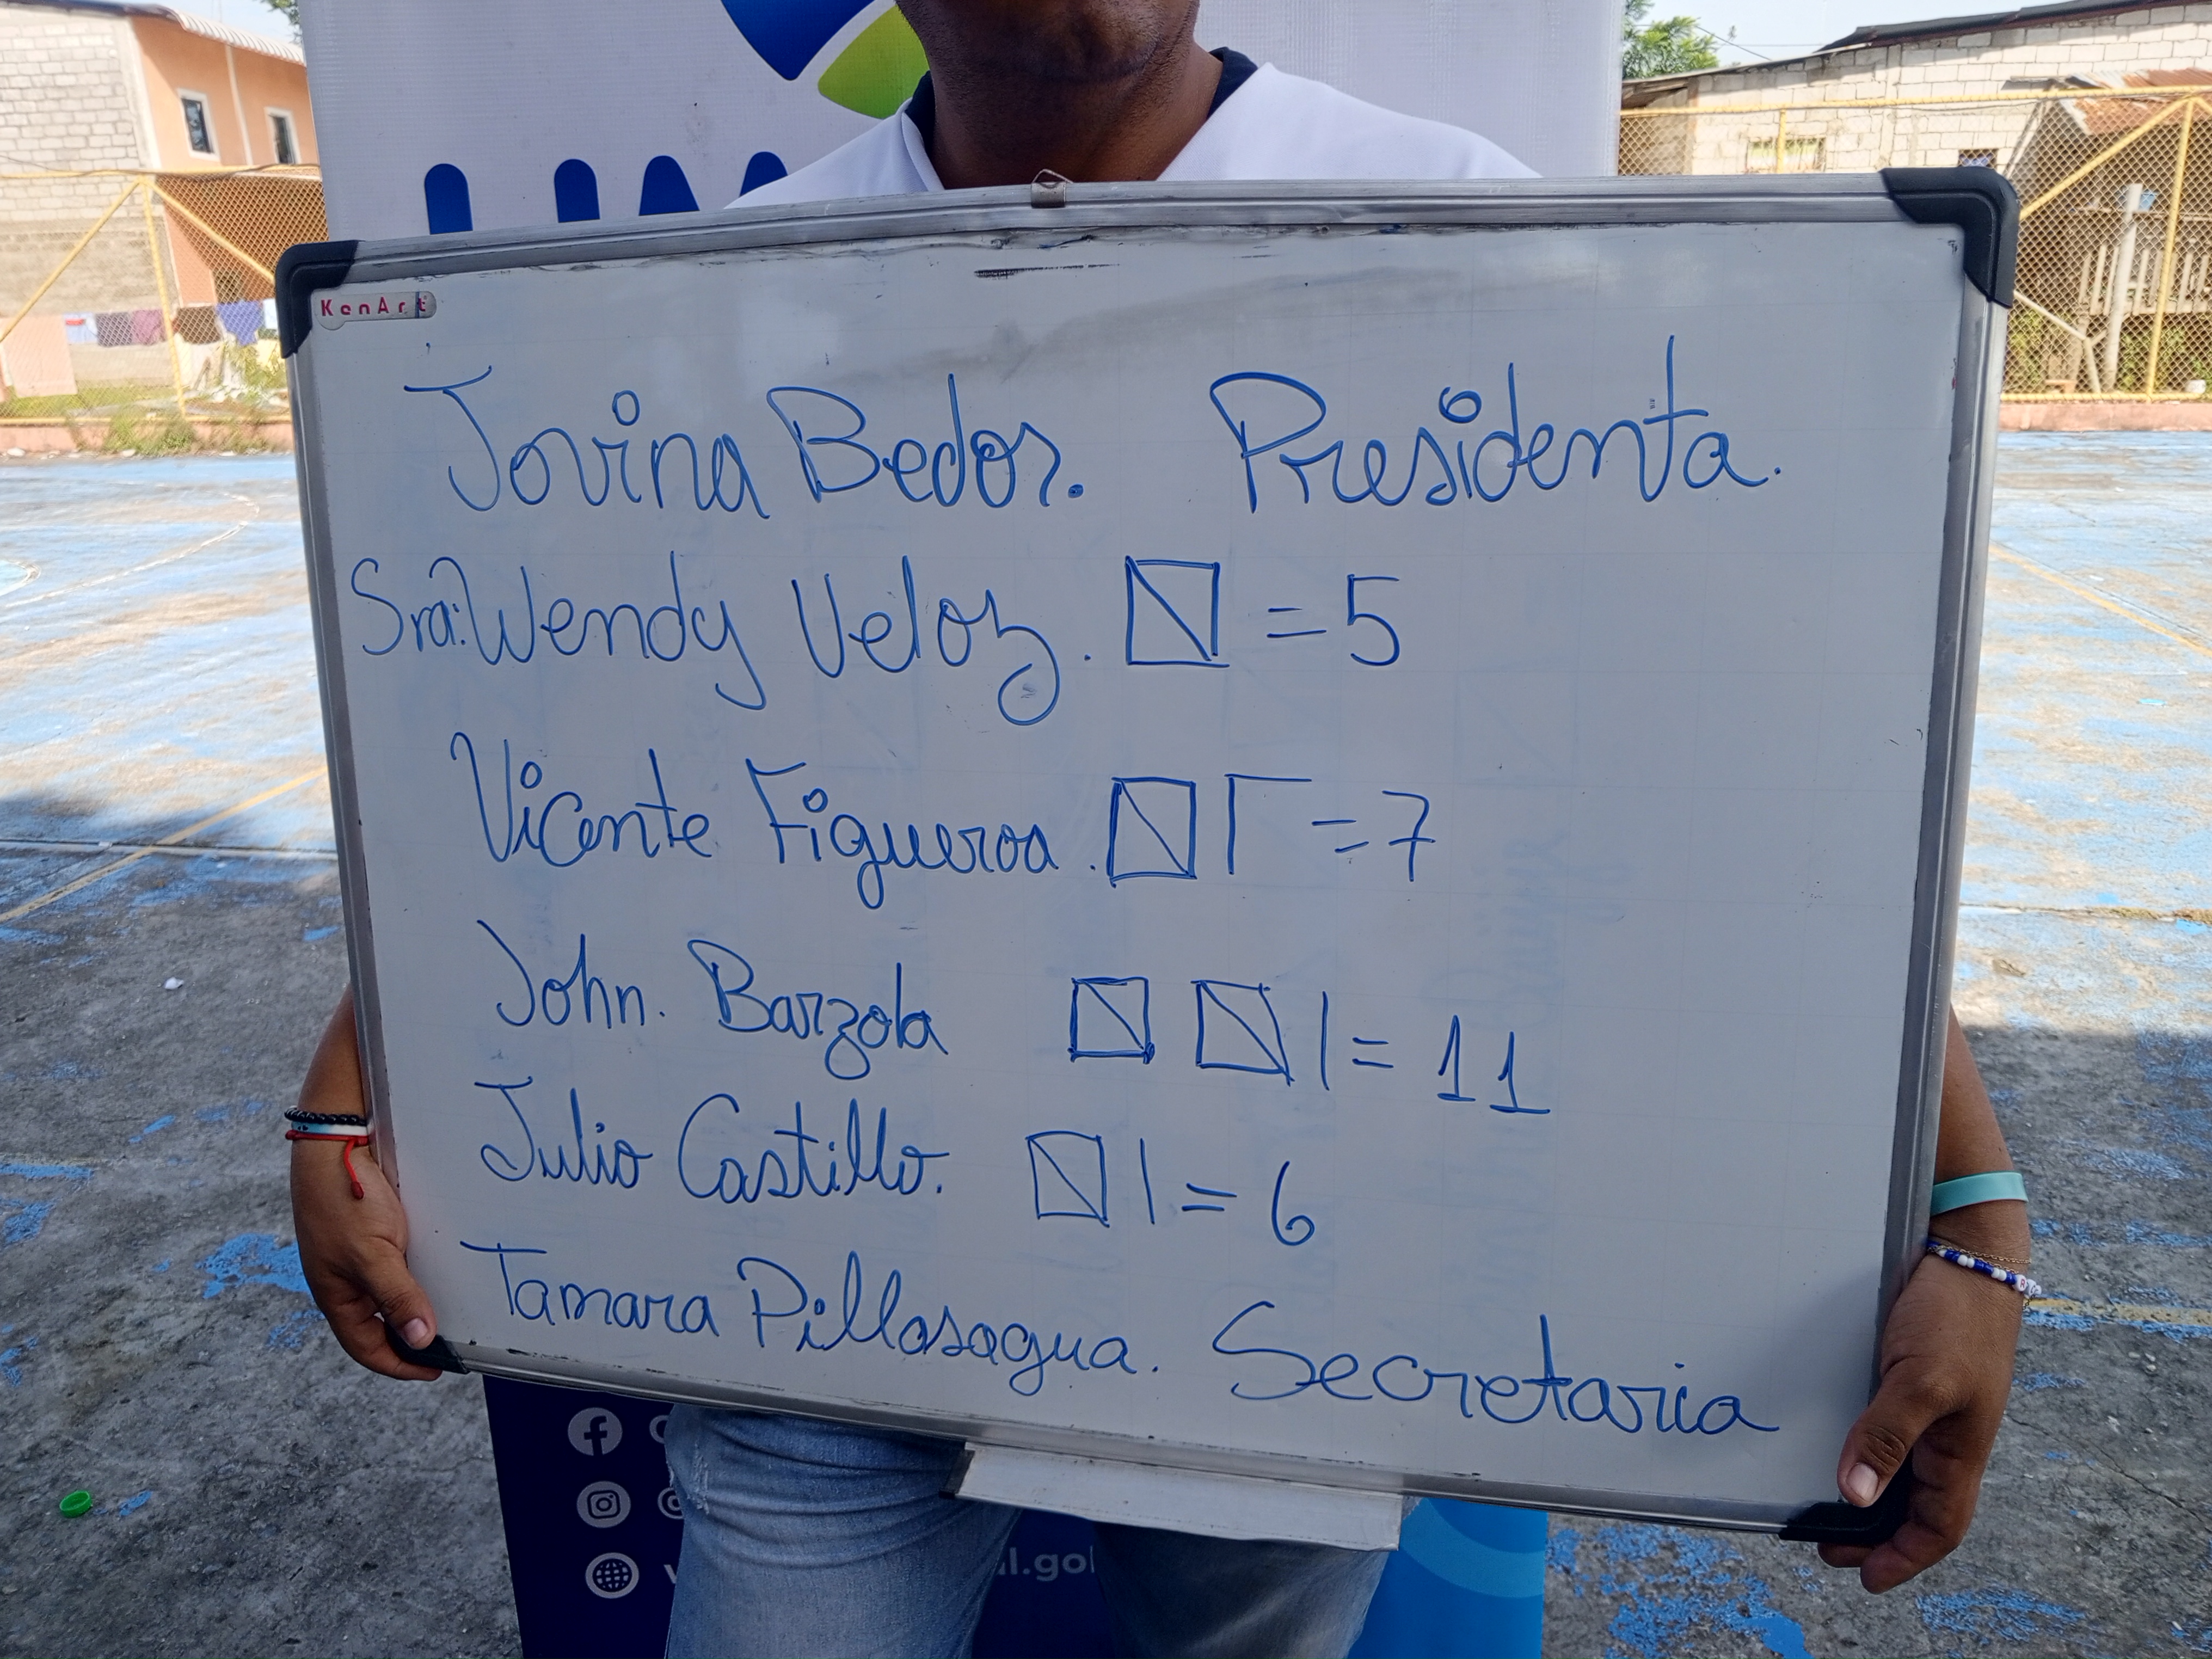 KenArt
Jovina Bedor. Presidenta.
Sra: Wendy Veloz. = 5
Vicente Figueroa. = 7
John. Barzola = 11
Julio Castillo. = 6
Tamara Pillasagua. Secretaria